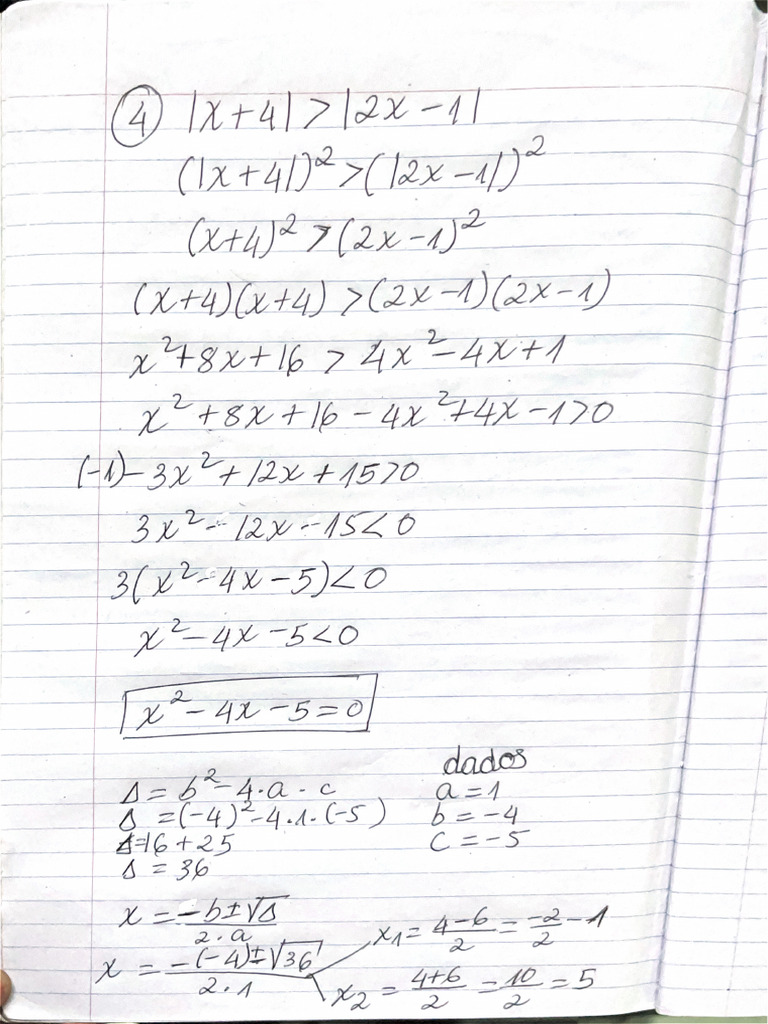 ④ |x+4|>|2x-1|
(|x+4|)²>(|2x-1|)²
(x+4)²>(2x-1)²
(x+4)(x+4)>(2x-1)(2x-1)
x²+8x+16 > 4x²-4x+1
x²+8x+16-4x²+4x-1>0
(-1)-3x²+12x+15>0
3x²-12x-15<0
3(x²-4x-5)<0
x²-4x-5<0
x²-4x-5=0
dados
Δ = b²-4·a·c a=1
Δ =(-4)²-4·1·(-5) b=-4
Δ=16+25 c=-5
Δ = 36
x = -b±√Δ / 2·a
x₁= 4-6/2 = -2/2 -1
x = -(-4)±√36 / 2·1
x₂ = 4+6/2 = 10/2 = 5